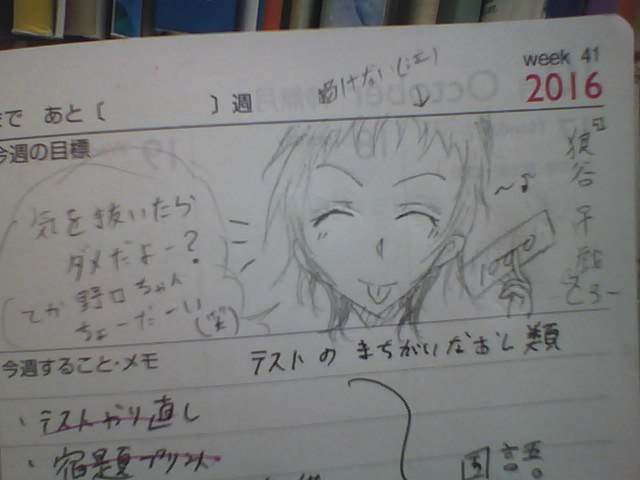 week 41
2016
まで あと [ ] 週
描けない(;エ)
今週の目標
気を抜いたら
ダメだよー?
てか 野口ちゃん
ちょーだーい
1000
今週すること・メモ
テストの まちがいなおし類
・テストやり直し
・宿題プリント
国語。